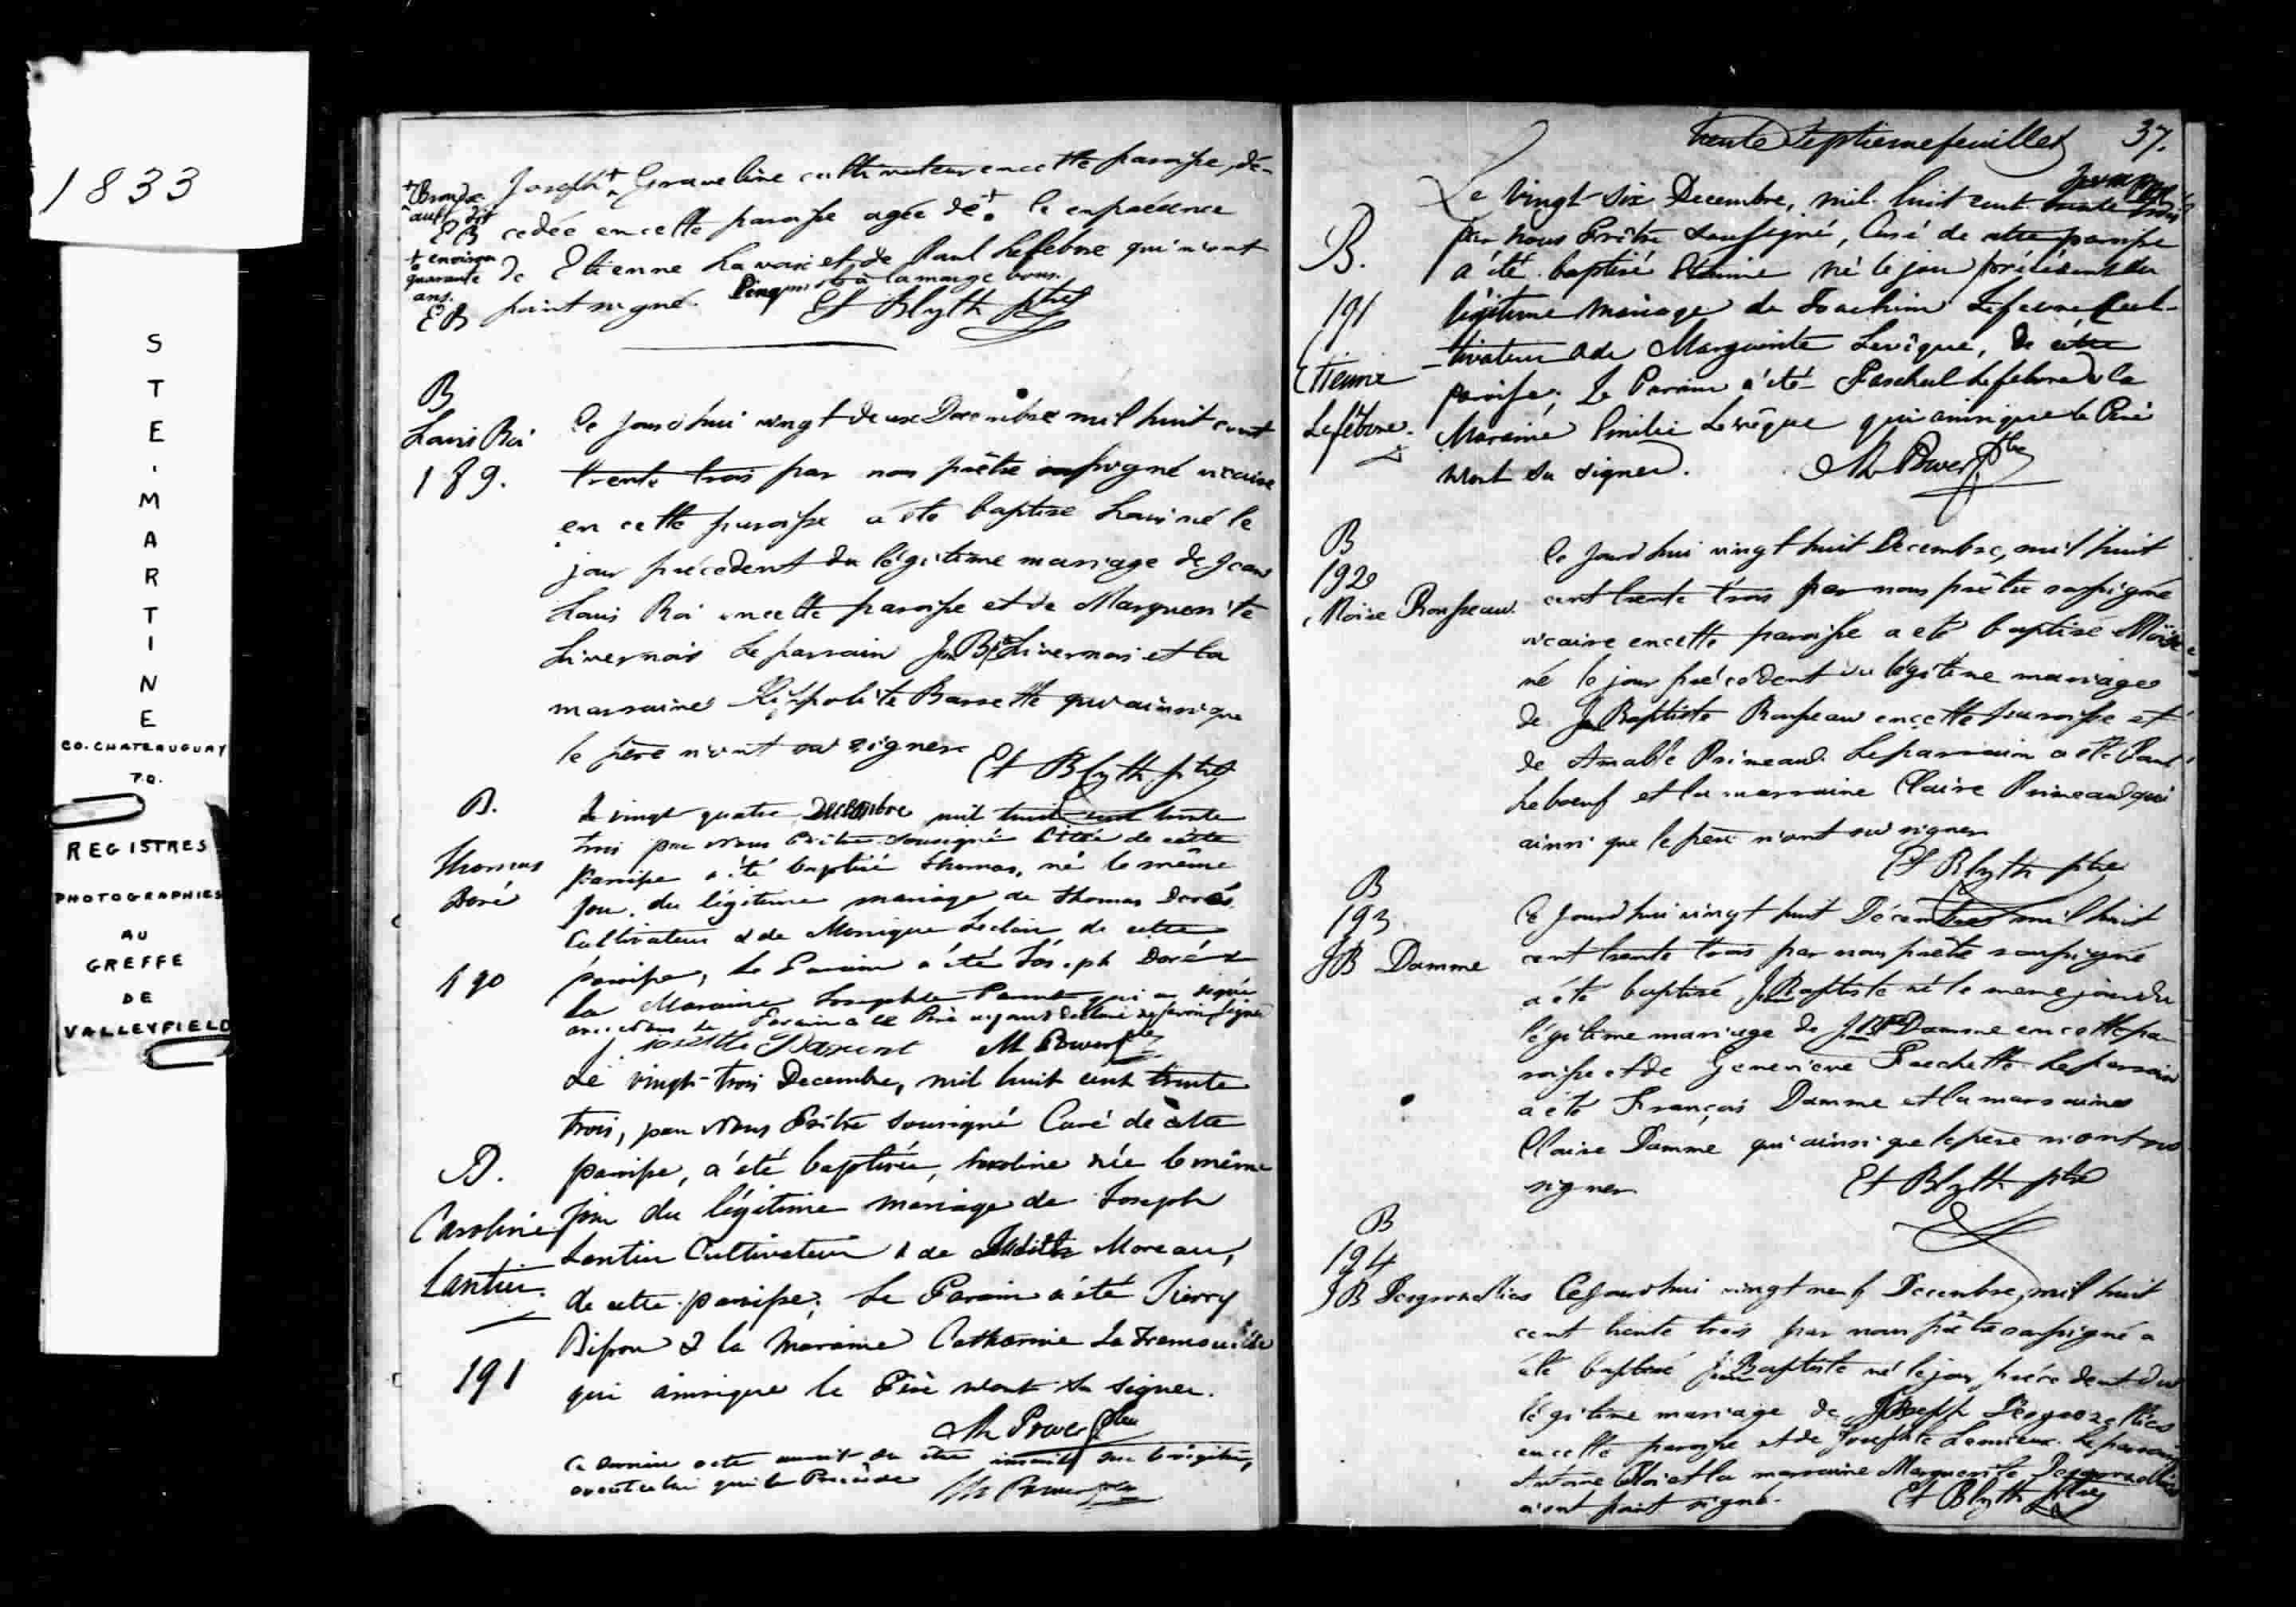 1833
STE. MARTINE
CO. CHATEAUGUAY
P.Q.
REGISTRES
PHOTOGRAPHIES
AU
GREFFE
DE
VALLEYFIELD
Joseph + Graveline cultivateur en cette paroisse, dé-
cédée en cette paroisse agée de + le en présence
de Etienne et de Paul Lefebvre qui n'ont
point signé. à la marge bons.
Et Blyth ptre
dit
EB
+ environ
quarante
ans.
EB
B
Louis Roi
189.
Ce jourd'hui vingt deux Decembre mil huit cent
trente trois par nous prêtre soussigné vicaire
en cette paroisse a été baptisé Louis né le
jour précédent du légitime mariage de Jean
Louis Roi en cette paroisse et de Marguerite
Livernois Le parrain Jn Bte Livernois et la
marraine Hippolite Barrette qui ainsi que
le père n'ont su signer
Et Blyth ptre
B.
Thomas
Doré
190
Le vingt quatre Decembre mil huit cent trente
trois par Nous Prêtre soussigné Curé de cette
Paroisse a été baptisé Thomas, né le même
jour, du légitime mariage de Thomas Doré
Cultivateur & de Monique Leclair de cette
paroisse, Le Parain a été Joseph Doré &
la Maraine Josephte Parent qui a signé
le Parain & le Père ayant déclaré ne savoir signer
Josette Parent M Power Ptre
Le vingt-trois Decembre, mil huit cent trente
trois, par Nous Prêtre soussigné Curé de cette
paroisse, a été baptisée, Caroline née le même
jour du légitime mariage de Joseph
Lantier Cultivateur & de Judith Moreau,
de cette paroisse; Le Parain a été Pierry
Bisson & la Maraine Catharine La Tremouille
qui ainsique le Père n'ont su signer.
M Power Ptre
B.
Caroline
Lantier.
191
Ce dernier acte aurait du être inscrit sur le régitre,
avant celui qui le Précède M Power Ptre
trente Septieme feuillet 37.
B.
191
Etienne
Lefebvre.
Le vingt-six Decembre, mil huit cent trente trois
par Nous Prêtre soussigné, Curé de cette paroisse
a été baptisé Etienne né le jour précédent du
légitime mariage de Joachim Lefebvre Cul-
-tivateur & de Marguerite Levêque, de cette
paroisse; Le Parain a été Paschal Lefebvre & la
Maraine Emilie Levêque qui ainsique le Père
n'ont su signer. M Power Ptre
B
192
Moïse Rousseau
Ce jourd'hui vingt huit Decembre, mil huit
cent trente trois par nous prêtre soussigné
vicaire en cette paroisse a été baptisé Moïse
né le jour précédent du légitime mariage
de Jn Baptiste Rousseau en cette paroisse et
de Amable Primeau. Le parrain a été Paul
Leboeuf et la marraine Claire Primeau qui
ainsi que le père n'ont su signer
Et Blyth ptre
B
193
JB Damme
Ce jourd'hui vingt huit Décembre mil huit
cent trente trois par nous prêtre soussigné
a été baptisé, Jn Baptiste né le meme jour du
légitime mariage de J Bte Damme en cette pa-
roisse et de Genevieve Frechette. Le parrain
a été François Damme et la marraine
Claire Damme qui ainsi que le père n'ont su
signer
Et Blyth ptre
B
194
JB Desgroseillies
Ce jourd'hui vingt neuf Decembre, mil huit
cent trente trois par nous prêtre soussigné a
été baptisé Jean Baptiste né le jour précédent du
légitime mariage de Joseph Desgroseillies
en cette paroisse et de Josephte Lemieux. Le parrain
Antoine et la marraine Marguerite Desgroseillies
n'ont point signé. Et Blyth ptre